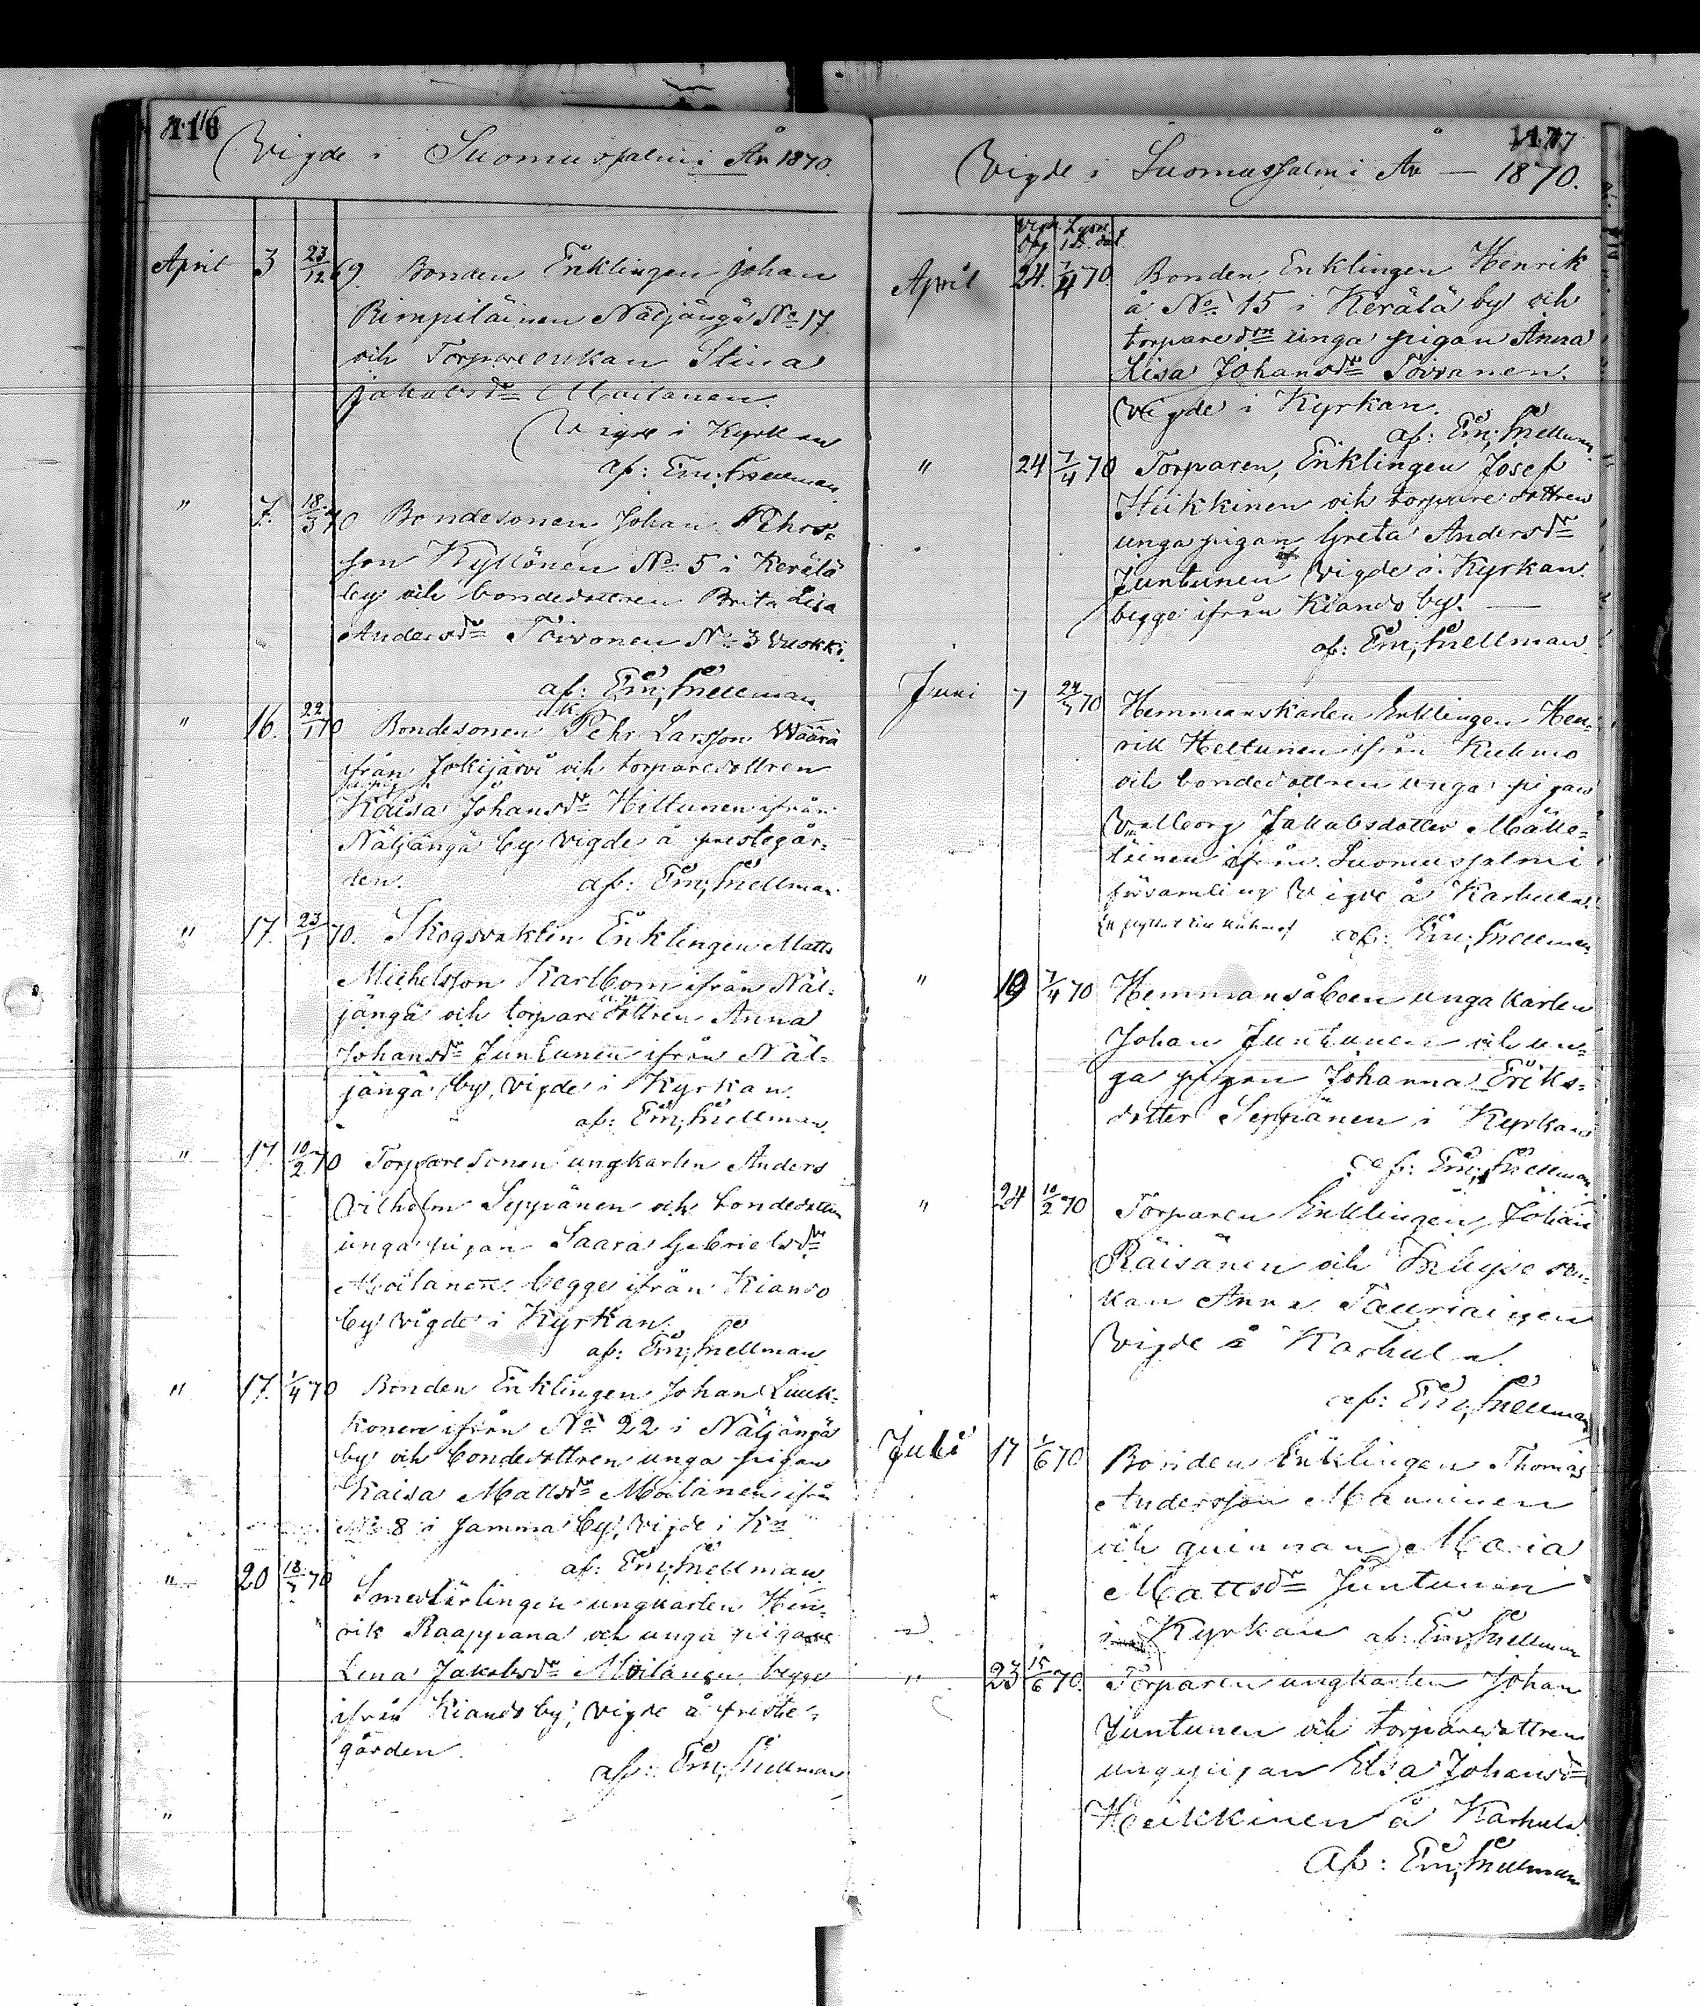 116
Vigde i Suomussalmi År 1870.
April 3 23/12 69. Bonden Enklingen Johan
Pimpiläinen Näljängä No 17
och Torpareenkan Stina
Jakobsdr Moilanen.
Vigde i Kyrkan
af: Em; Snellman.
" 7. 18/3 70 Bondesonen Johan Pehrs-
son Kyllönen No 5 i Kerälä
by och bondedottren Brita Lisa
Andersdr Toivonen No 3 Vuokki.
af: Em; Snellman
" 16. 22/1 70 Bondesonen Pehr Larsson Waara
från Jokijärvi och torparedottren
Kaisa Johansdr Hiltunen ifrån
Näljängä by vigde å prestegår-
den. af: Em; Snellman.
" 17. 23/1 70. Skogsvakten Enklingen Matts
Michelsson Karlbom ifrån Näl-
jängä och torparedottren Anna
Johansdr Juntunen ifrån Näl-
jängä by, vigde i Kyrkan.
af: Em; Snellman.
" 17. 10/2 70 Torparesonen ungkarlen Anders
Vilhelm Seppänen och bondedottren
unga pigan Saara Gabrielsdr
Moilanen begge ifrån Kiando
by vigde i Kyrkan.
af: Em; Snellman.
" 17. 1/4 70 Bonden Enklingen Johan Luuk-
konen ifrån No 22 i Näljängä
by och bondedottren unga pigan
Kaisa Mattsdr Moilanen ifrån
No 8 i Jamma by, vigde i Kn
af: Em; Snellman.
" 20 18/ 70 Smedlärlingen ungkarlen Hen-
rik Raappana och unga pigan
Lena Jakobsdr Moilanen begge
ifrån Kiando by, vigde å preste-
gården.
af: Em; Snellman
"
117
Vigde i Suomussalmi År — 1870.
April 24. 7/4 70 Bonden Enklingen Henrik
å No 15 i Kerälä by och
torparedtrn unga pigan Anna
Lisa Johansdr Toivanen.
Vigde i Kyrkan.
af: Em; Snellman.
" 24 7/4 70 Torparen, Enklingen Josef
Huikkinen och torparedottren
unga pigan Greta Andersdr
Juntunen vigde i Kyrkan.
begge ifrån Kiando by. —
af: Em; Snellman.
Juni 7 70 Hemmanskarlen Enklingen Hen-
rik Heltunen ifrån Kuhmo
och bondedottren unga pigan
Valborg Jakobsdotter Mälle-
läinen ifrån Suomussalmi
församling Vigde å Karhula.
af: Em; Snellman.
" 19 7/4 70 Hemmansåboen unga karlen
Johan Juntunen och un-
ga pigan Johanna Eriks-
dotter Seppänen i Kyrkan
af: Em; Snellman.
" 24 10/2 70 Torparen Enklingen Johan
Räisänen och Inhyses en-
kan Anna Tauriainen
Vigde å Karhula.
af: Em; Snellman
Juli 17 1/6 70 Bonden Enklingen Thomas
Andersson Manninen
och quinnan Maria
Mattsdr Juntunen
i Kyrkan af: Em; Snellman
" 23 15/6 70. Torparen ungkarlen Johan
Juntunen och torparedottren
unga pigan Elsa Johansdr
Heikkinen å Karhula.
Af: Em; Snellman